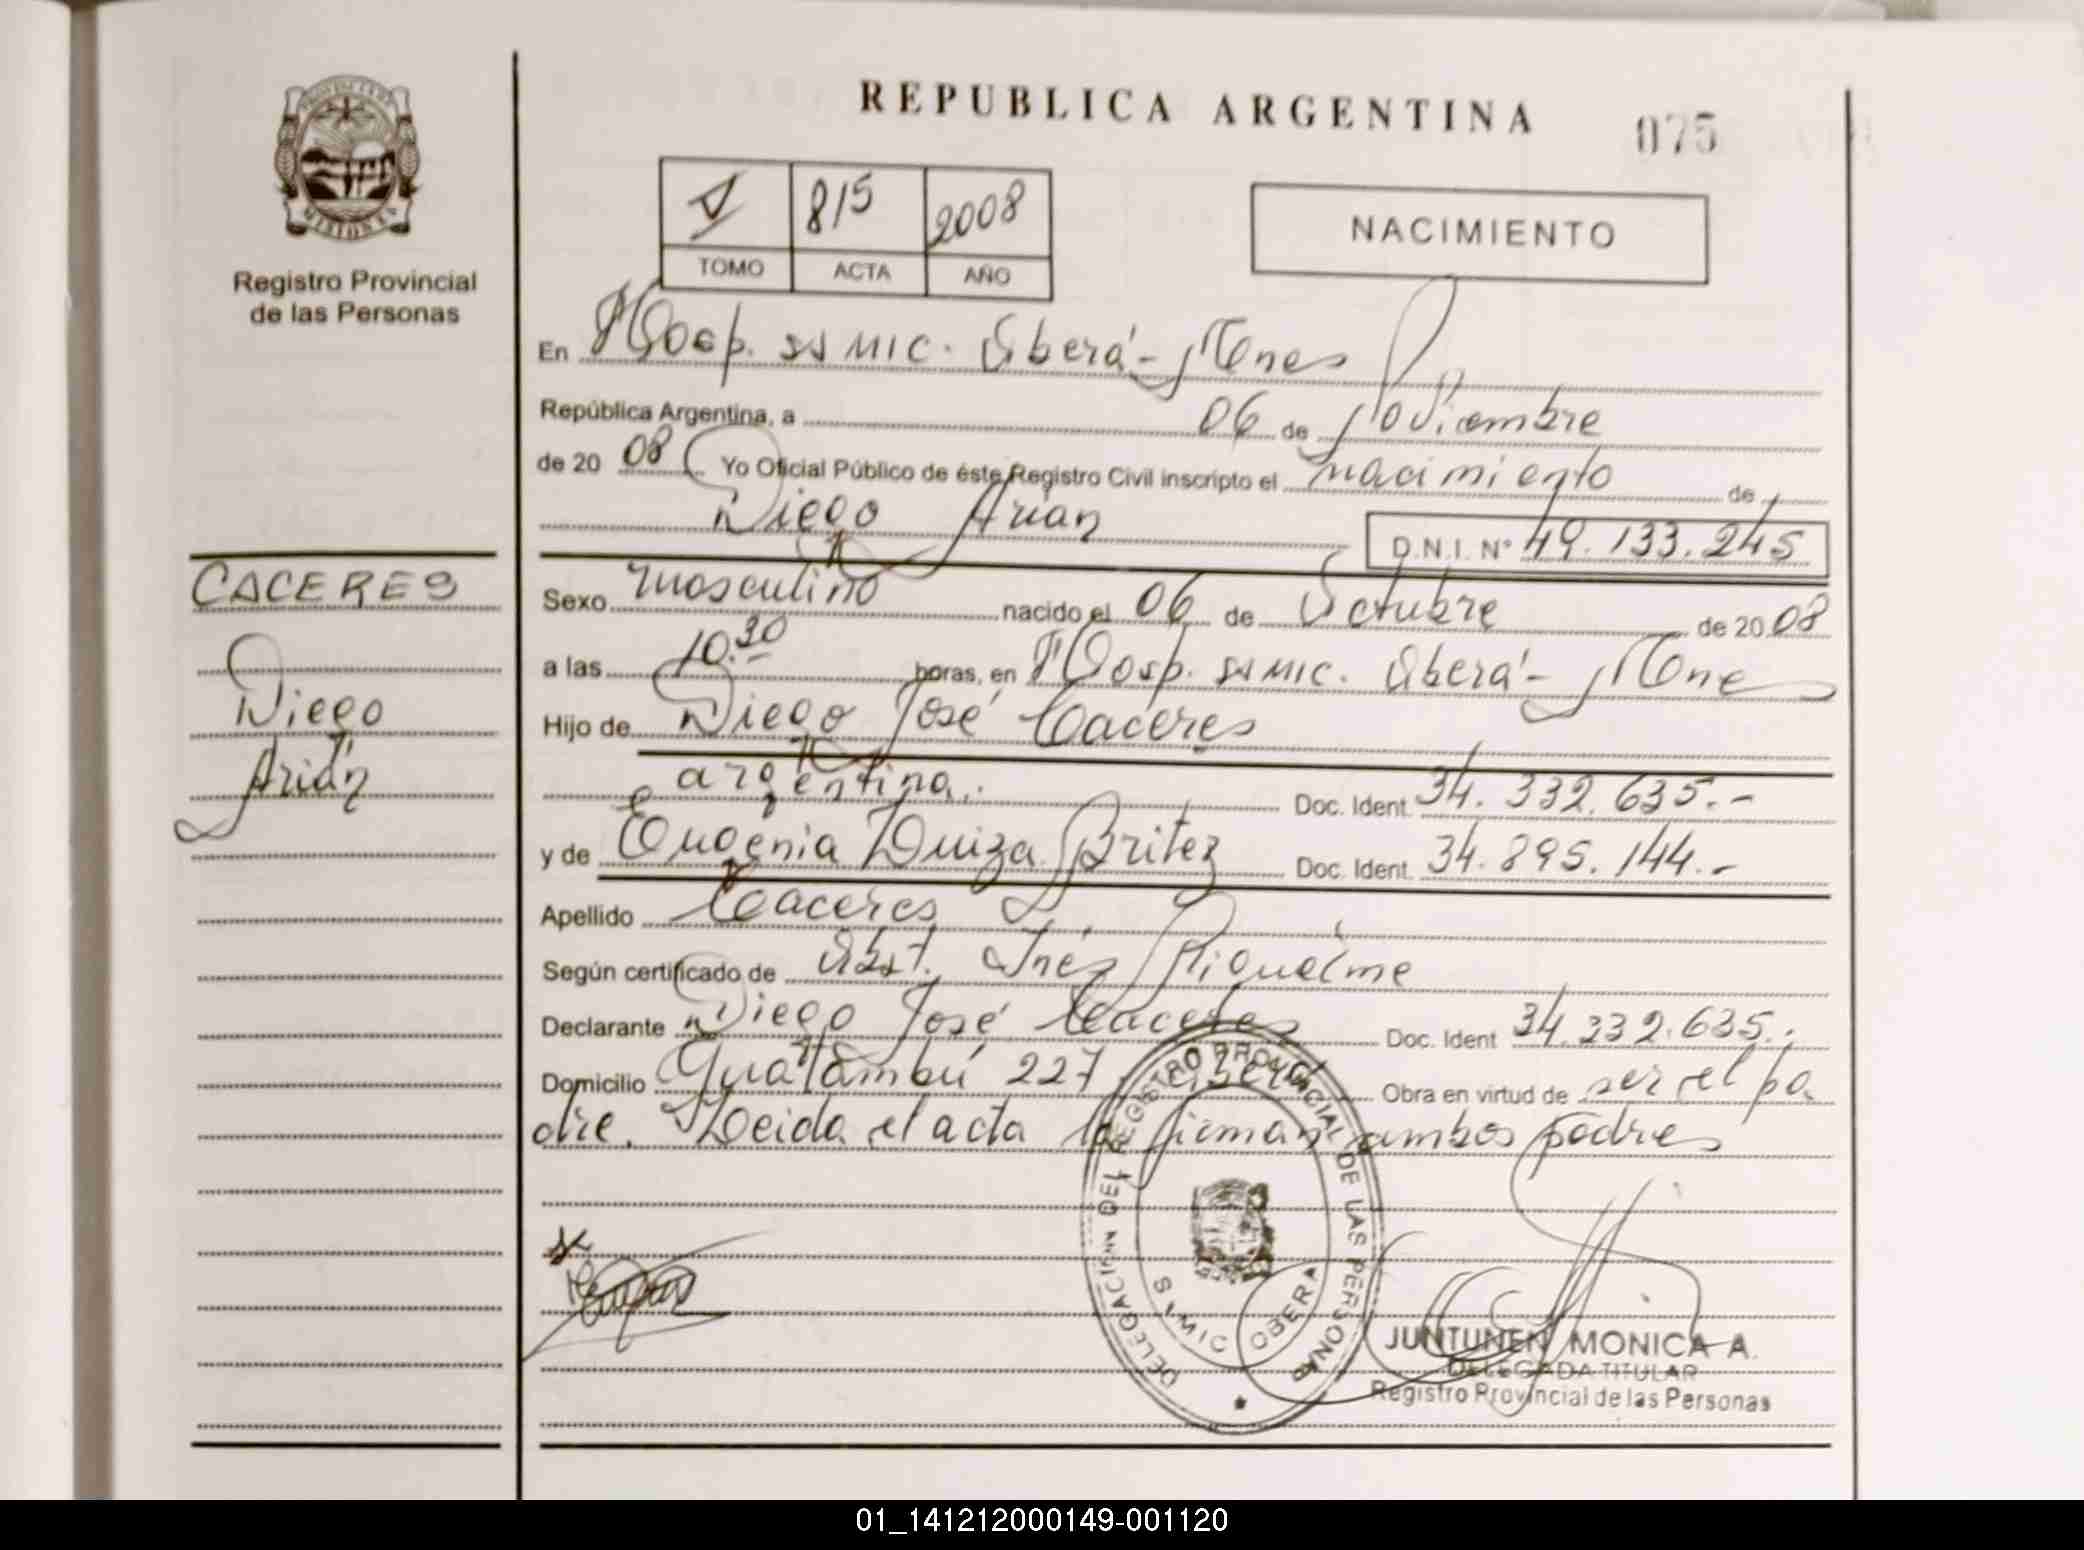 REPUBLICA ARGENTINA
075
PROVINCIA DE
MISIONES
Registro Provincial
de las Personas
815 2008
TOMO ACTA AÑO
NACIMIENTO
En Hosp. SAMIC. Oberá - Mnes
República Argentina, a 06 de Noviembre
de 20 08 Yo Oficial Público de éste Registro Civil inscripto el nacimiento de
Diego Arián
D.N.I. N° 49.133.245
CACERES
Diego
Arián
Sexo masculino nacido el 06 de Octubre de 20 08
a las 10.30 horas, en Hosp. SAMIC. Oberá - Mnes
Hijo de Diego José Caceres
argentina.. Doc. Ident. 34.332.635.-
y de Eugenia Luiza Britez Doc. Ident. 34.895.144.-
Apellido Caceres
Según certificado de Obst. Inés Riquelme
Declarante Diego José Caceres Doc. Ident 34.332.635.-
Domicilio Guatambú 227 Oberá Obra en virtud de ser el pa
dre. Leida el acta la firman ambos padres
DELEGACION DEL REGISTRO PROVINCIAL DE LAS PERSONAS
SAMIC OBERA
JUNTUNEN MONICA A.
DELEGADA TITULAR
Registro Provincial de las Personas
01_141212000149-001120